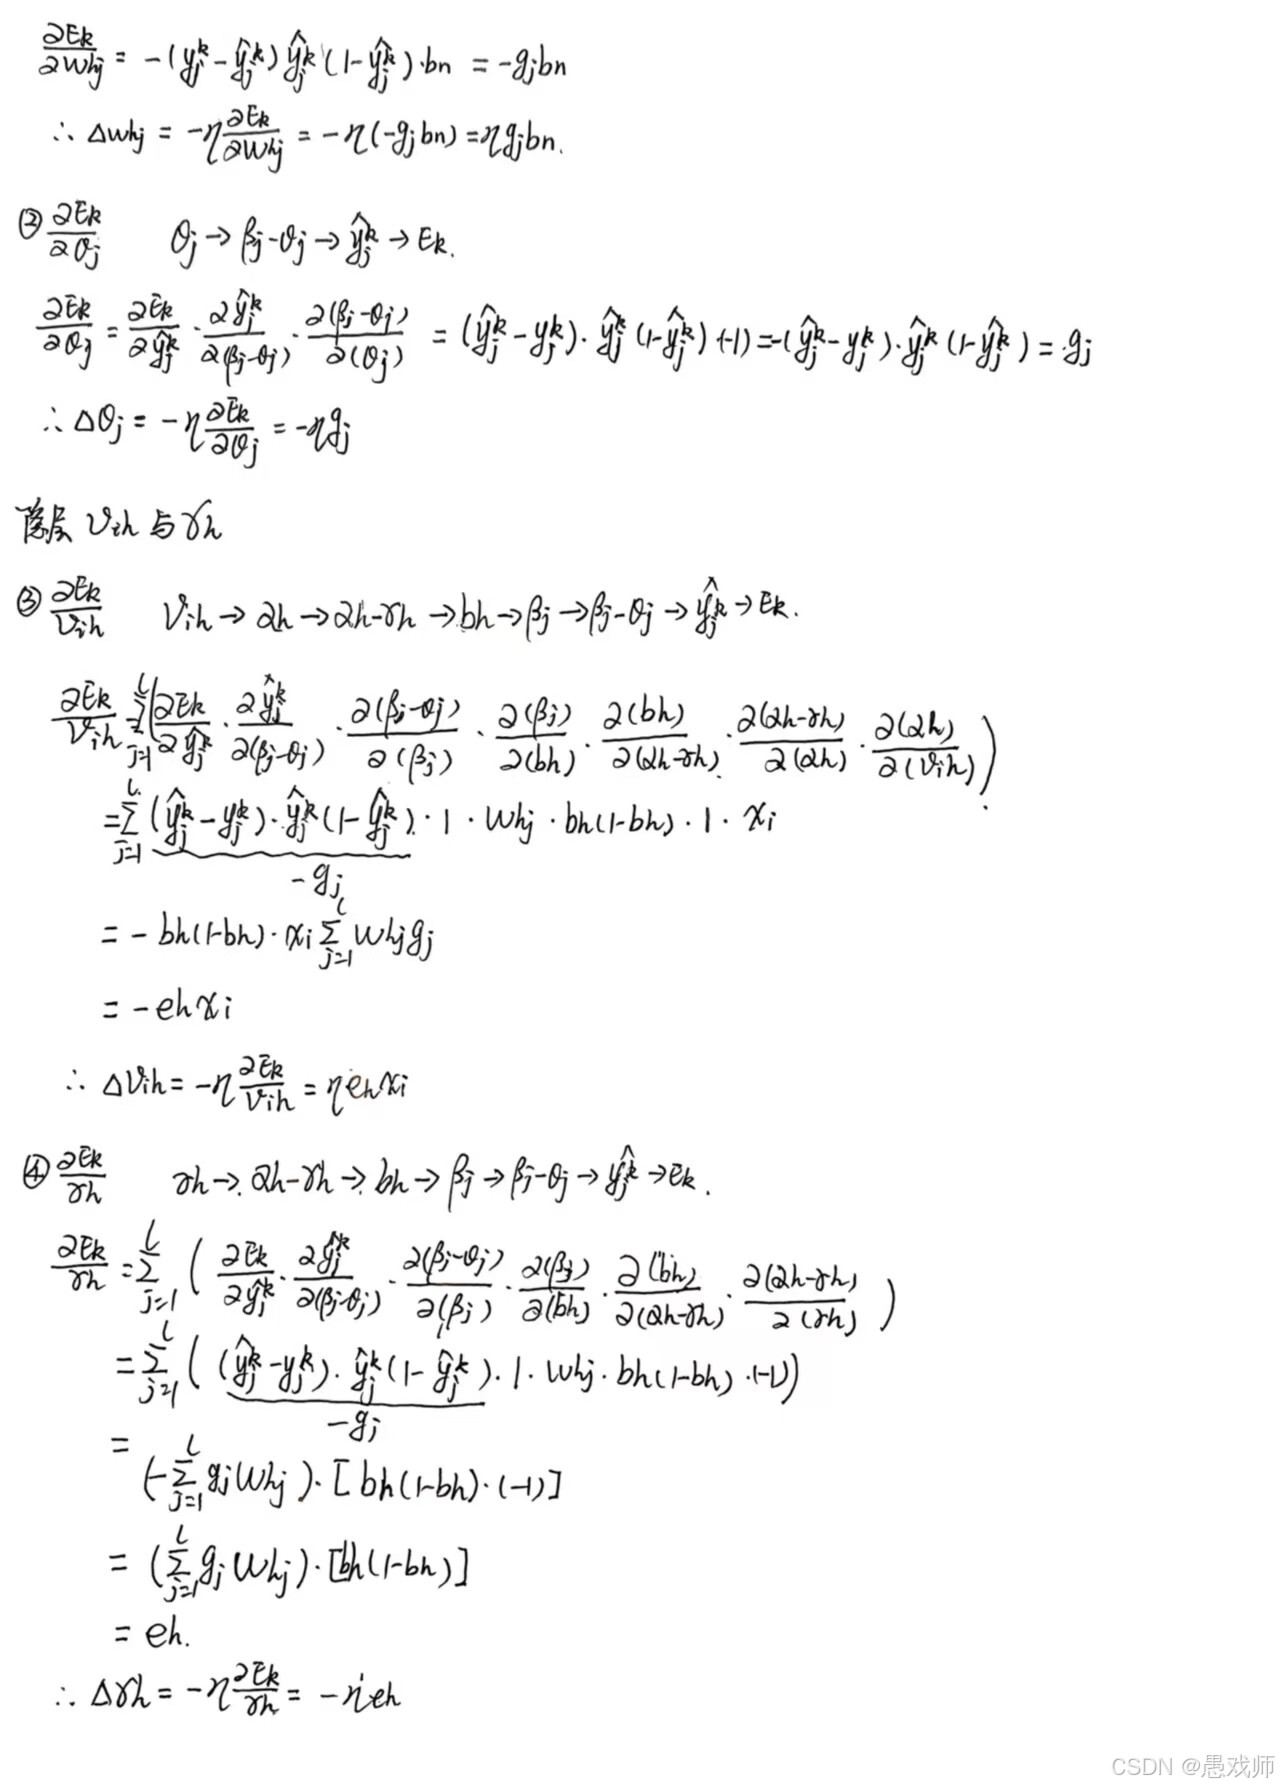 ∂Ek/∂whj = -(yj^k - ŷj^k) ŷj^k (1-ŷj^k)·bn = -gjbn
∴ Δwhj = -η ∂Ek/∂whj = -η(-gjbn) = ηgjbn.
② ∂Ek/∂θj θj → βj-θj → ŷj^k → Ek.
∂Ek/∂θj = ∂Ek/∂ŷj^k · ∂ŷj^k/∂(βj-θj) · ∂(βj-θj)/∂(θj) = (ŷj^k - yj^k)·ŷj^k(1-ŷj^k)·(-1) = -(ŷj^k - yj^k)·ŷj^k(1-ŷj^k) = gj
∴ Δθj = -η ∂Ek/∂θj = -ηgj
隐层 vih 与 γh
③ ∂Ek/vih vih → αh → αh-γh → bh → βj → βj-θj → ŷj^k → Ek.
∂Ek/vih = Σ_{j=1}^{l} (∂Ek/∂ŷj^k · ∂ŷj^k/∂(βj-θj) · ∂(βj-θj)/∂(βj) · ∂(βj)/∂(bh) · ∂(bh)/∂(αh-γh) · ∂(αh-γh)/∂(αh) · ∂(αh)/∂(vih))
= Σ_{j=1}^{l} (ŷj^k - yj^k)·ŷj^k(1-ŷj^k)·1·whj·bh(1-bh)·1·xi
-gj
= -bh(1-bh)·xi Σ_{j=1}^{l} whjgj
= -ehxi
∴ Δvih = -η ∂Ek/vih = ηehxi
④ ∂Ek/γh γh → αh-γh → bh → βj → βj-θj → ŷj^k → Ek.
∂Ek/γh = Σ_{j=1}^{l} (∂Ek/∂ŷj^k · ∂ŷj^k/∂(βj-θj) · ∂(βj-θj)/∂(βj) · ∂(βj)/∂(bh) · ∂(bh)/∂(αh-γh) · ∂(αh-γh)/∂(γh))
= Σ_{j=1}^{l} ((ŷj^k - yj^k)·ŷj^k(1-ŷj^k)·1·whj·bh(1-bh)·(-1))
-gj
= (-Σ_{j=1}^{l} gjwhj)·[bh(1-bh)·(-1)]
= (Σ_{j=1}^{l} gjwhj)·[bh(1-bh)]
= eh.
∴ Δγh = -η ∂Ek/γh = -ηeh
CSDN @愚戏师